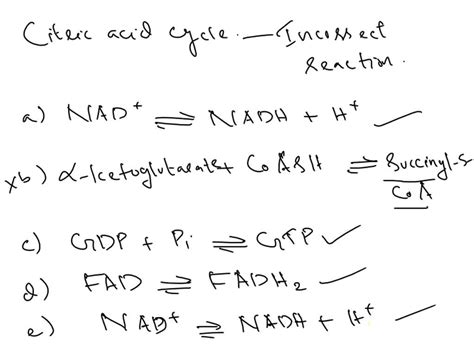 Citric acid cycle. — Incorrect
reaction.
a) NAD⁺ ⇌ NADH + H⁺ ✓
xb) α-ketoglutarate + CoASH ⇌ Succinyl-s
CoA
c) GDP + Pi ⇌ GTP ✓
d) FAD ⇌ FADH₂ ✓
e) NAD⁺ ⇌ NADH + H⁺ ✓